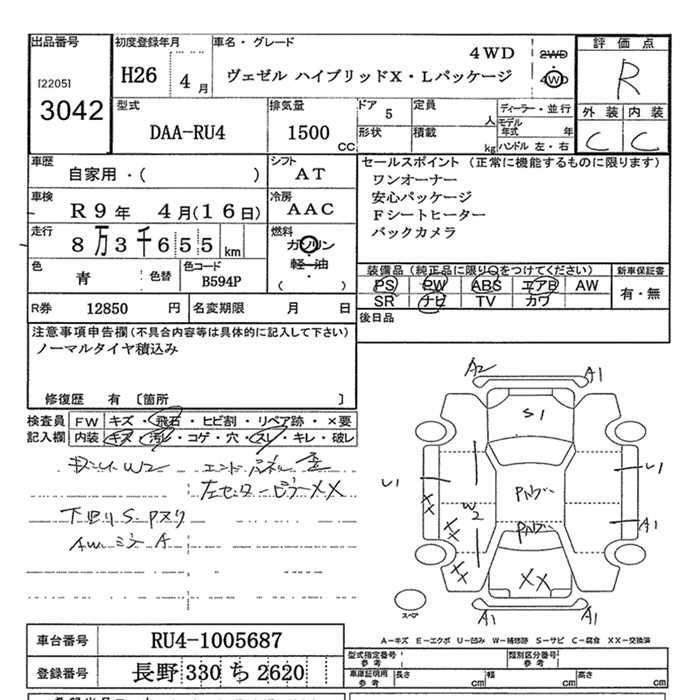 出品番号
[2205]
3042
初度登録年月
H26 4月
車名・グレード
4WD
ヴェゼル ハイブリッドX・Lパッケージ
2WD
4WD
評価点
R
外装 内装
C C
型式
DAA-RU4
排気量
1500 CC
ドア 5
定員 人
形状
積載 kg
ディーラー・並行
モデル年式 年
ハンドル 左・右
車歴
自家用・( )
シフト
AT
車検
R9年 4月(16日)
冷房
AAC
走行
8万3千655km
燃料
ガソリン
軽・油
( )
色
青
色替
色コード
B594P
セールスポイント (正常に機能するものに限ります)
ワンオーナー
安心パッケージ
Fシートヒーター
バックカメラ
装備品(純正品に限り○をつけてください)
PS PW ABS エアB AW
SR ナビ TV カワ
新車保証書
有・無
R券 12850 円
名変期限 月 日
後日品
注意事項申告欄(不具合内容等は具体的に記入して下さい)
ノーマルタイヤ積込み
修復歴 有 [箇所 ]
検査員記入欄
FW キズ・飛石・ヒビ割・リペア跡・×要
内装 キズ・汚レ・コゲ・穴・スレ・キレ・破レ
W2 エンドパネル 歪
左センターピラーXX
下回りS・Pスリ
AWミゾA
A2
A1
S1
U1
U1
XX
W2
XX
XX
Pルーフ
XX
A1
A1
A1
スペア
A-キズ E-エクボ U-凹み W-補修跡 S-サビ C-腐食 XX-交換済
車台番号
RU4-1005687
登録番号
長野 330 ち 2620
型式指定番号 参考
類別区分番号 参考
車庫証明用 参考
長さ cm
幅 cm
高さ cm